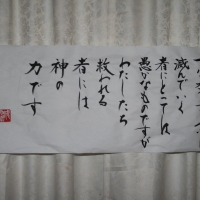 滅んでいく
者にとっては
愚かなものですが
わたしたち
救われる
者には
神の
力です